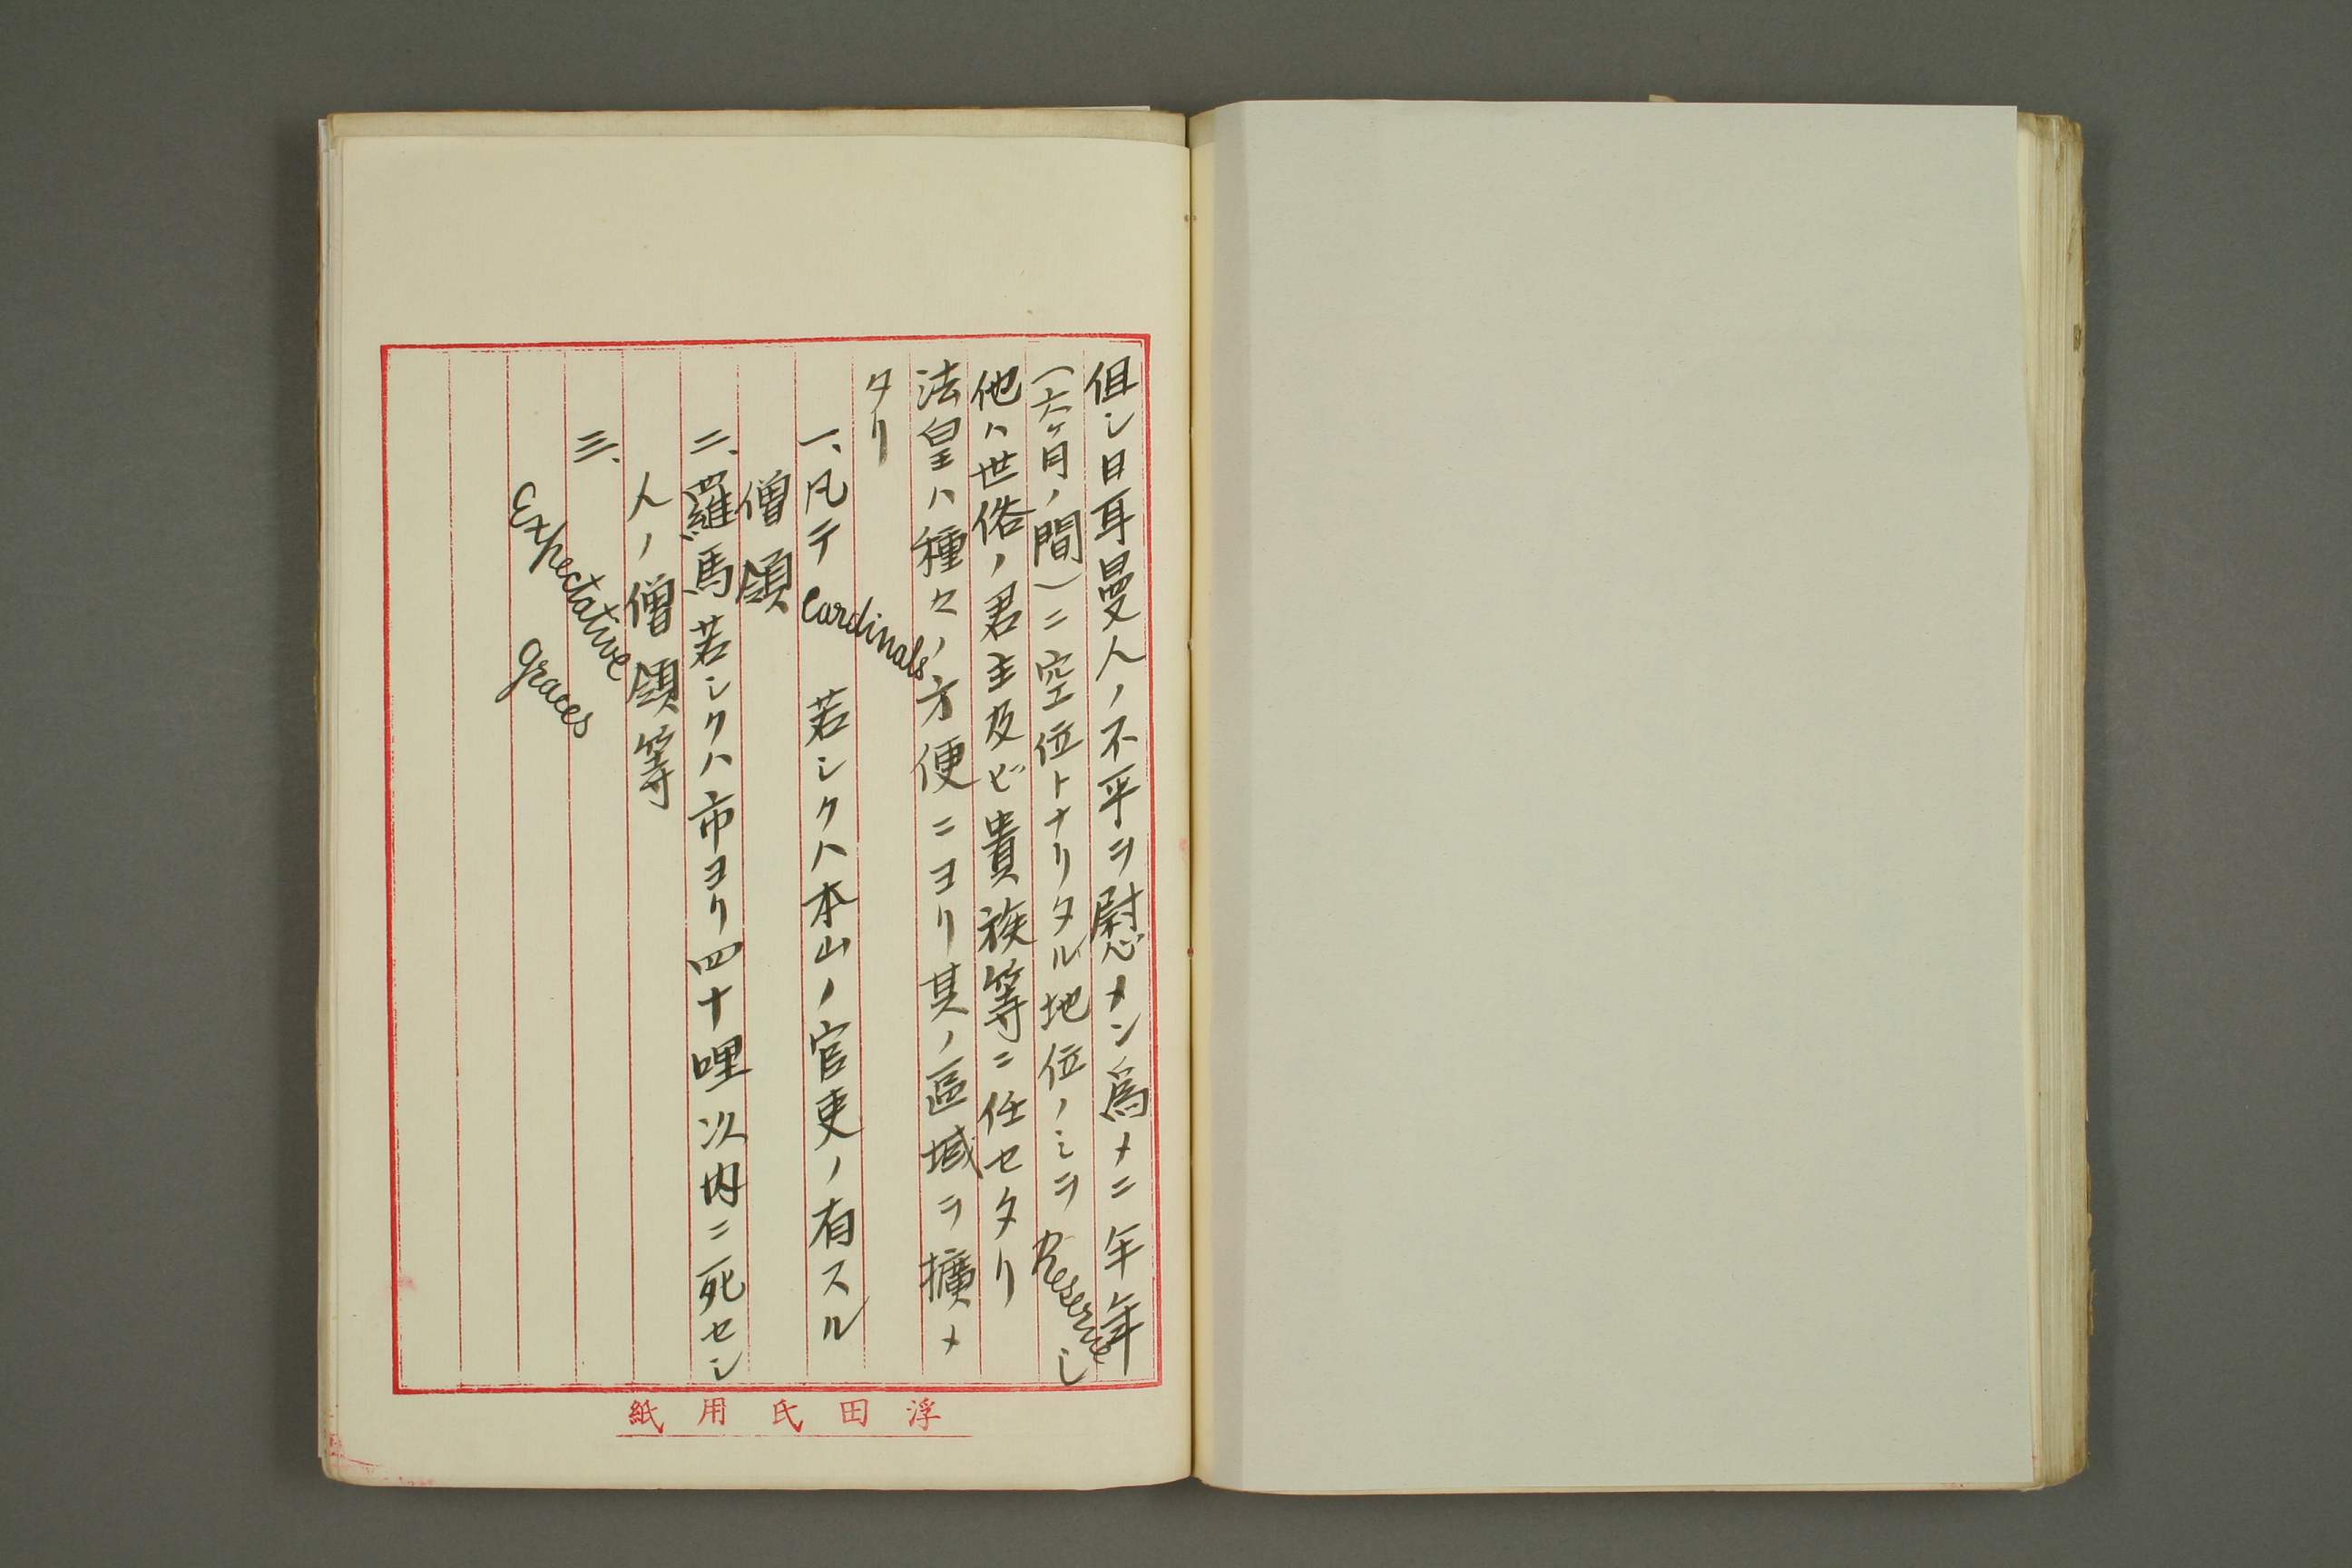 但シ日耳曼人ノ不平ヲ慰メン為メニ年年
(六ヶ月ノ間)ニ空位トナリタル地位ノミヲReserveし
他ハ世俗ノ君主及ビ貴族等ニ任セタリ
法皇ハ種々ノ方便ニヨリ其ノ區域ヲ擴メ
タリ
一、凡テ Cardinals 若シクハ本山ノ官吏ノ有スル
僧領
二、羅馬若シクハ市ヨリ四十哩以内ニ死セシ
人ノ僧領等
三、
Expectative
graces
浮田氏用紙